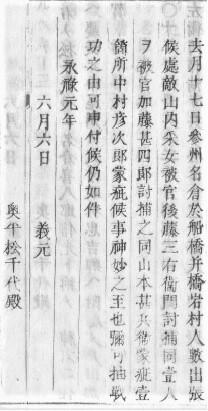 去月十七日參州名倉於船橋并橋岩村人數出張
候處敵山内采女被官後藤三右衞門討捕同壹人
ヲ被官加藤甚四郎討捕之同山本甚兵衞蒙疵壹
箇所中村彦次郎蒙疵候事神妙之至也彌可抽戰
功之由可申付候仍如件
永祿元年
六月六日　義元
奥平松千代殿